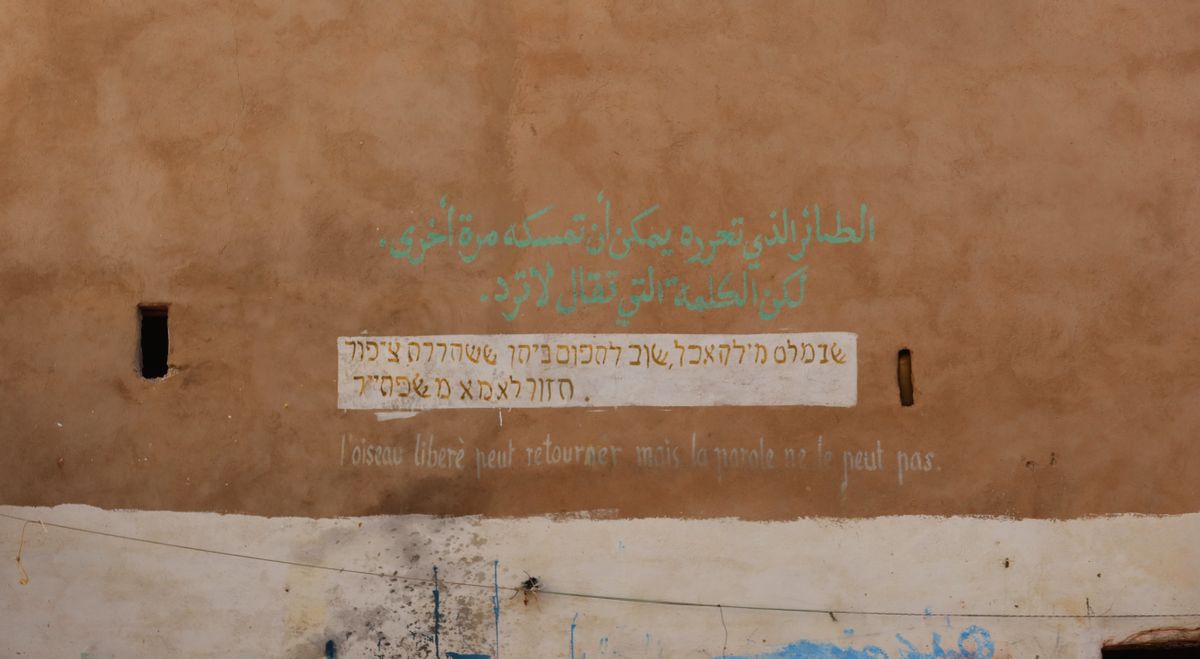 الطائر الذي تحرره يمكن أن تمسكه مرة أخرى.
لكن الكلمة التي تقال لا ترد.
שנמלס מילה אבל, שוב לתפוס ניתן ששהררה ציפור
חזור לא
l'oiseau liberè peut retourner mais la parole ne le peut pas.